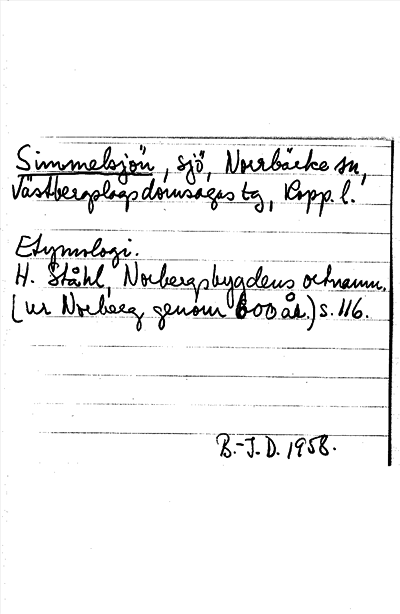 Simmelsjön, sjö, Norrbärke sn,
Västbergslags domsagas tg, Kopp. l.
Etymologi.
H. Ståhl, Norbergsbygdens ortnamn.
(ur Norberg genom 600 år.) s. 116.
B.-J. D. 1958.